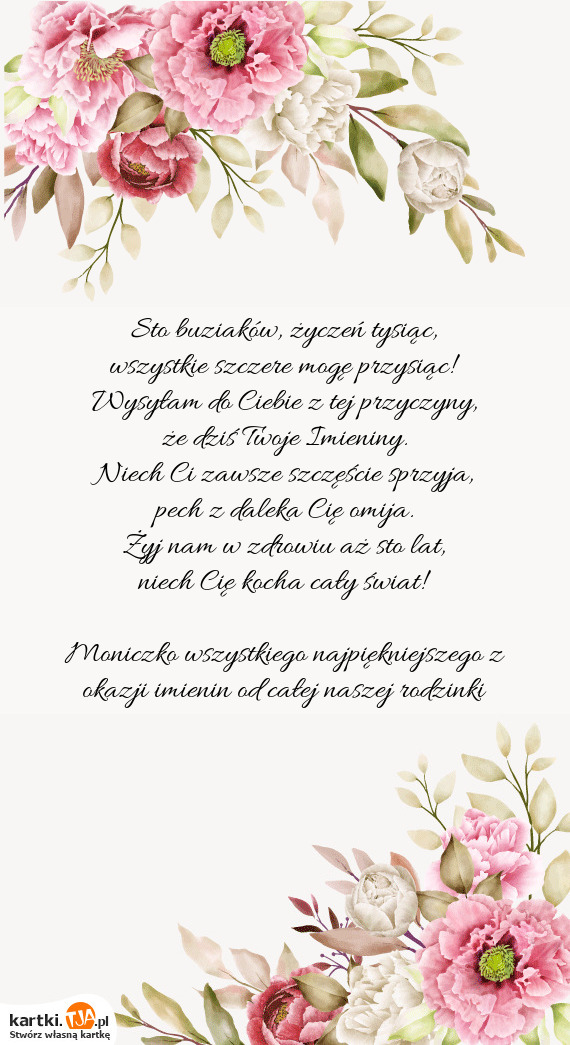 Sto buziaków, życzeń tysiąc,
wszystkie szczere mogę przysiąc!
Wysyłam do Ciebie z tej przyczyny,
że dziś Twoje Imieniny.
Niech Ci zawsze szczęście sprzyja,
pech z daleka Cię omija.
Żyj nam w zdrowiu aż sto lat,
niech Cię kocha cały świat!
Moniczko wszystkiego najpiękniejszego z
okazji imienin od całej naszej rodzinki
kartki.TJA.pl
Stwórz własną kartkę